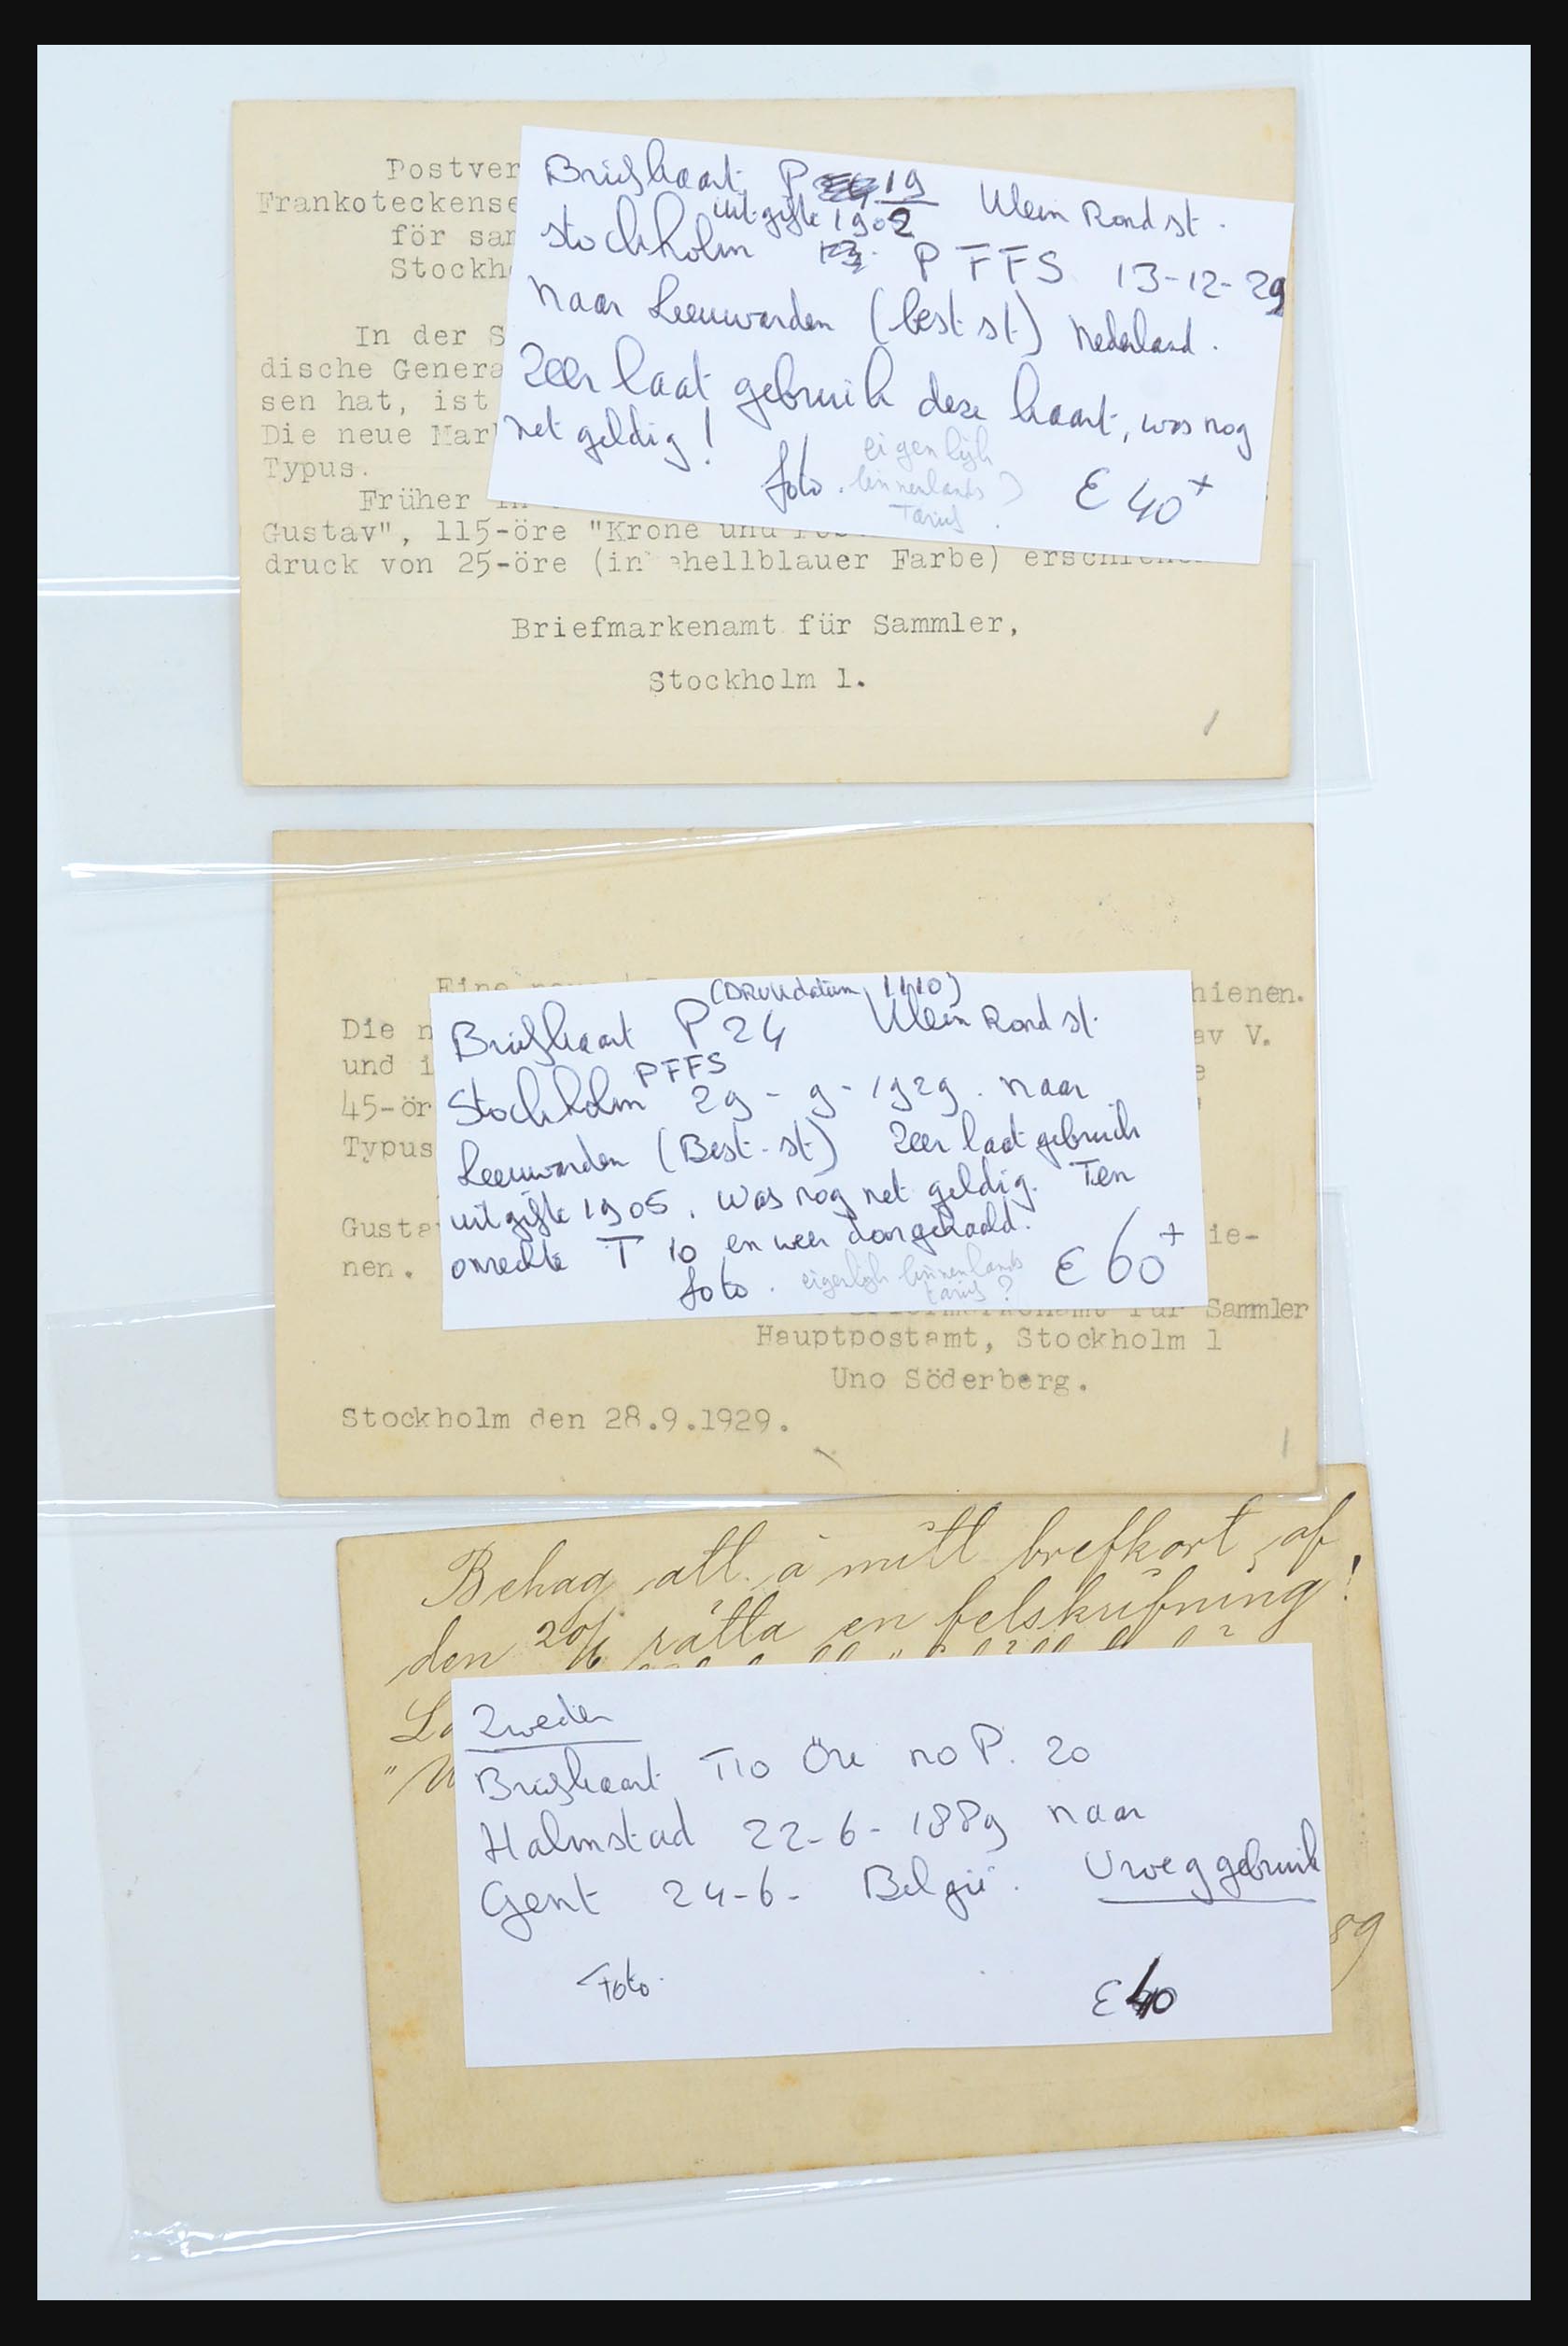 Postver
Frankoteckense
för sam
Stockho
In der S
dische Genera
sen hat, ist
Die neue Mar
Typus.
Früher in
Gustav", 115-öre "Krone und
druck von 25-öre (in hellblauer Farbe)
Briefmarkenamt für Sammler,
Stockholm 1.
Briefkaart P 19 Klein Rond st.
uitgifte 1902
Stockholm PFFS 13-12-29
Naar Leeuwarden (best st) Nederland.
Zeer laat gebruik deze kaart, was nog
net geldig!
foto. eigenlijk binnenlands tarief? € 40+
Eine
hienen.
Die n
av V.
und i
45-ör
Typus
Gusta
ie-
nen.
für Sammler
Hauptpostamt, Stockholm 1
Uno Söderberg.
Stockholm den 28.9.1929.
(DRUKdatum 1110)
Briefkaart P 24 Klein Rond st.
Stockholm PFFS 29-9-1929. naar
Leeuwarden (Best-st) Zeer laat gebruik
uitgifte 1905. Was nog net geldig. Ten
onrechte T 10 en weer doorgehaald.
foto. eigenlijk binnenlands tarief? € 60+
Behag att å mitt brefkort af
den 20/6 rätta en felskrifning!
89
Zweden
Briefkaart T10 Öre no P. 20
Halmstad 22-6-1889 naar
Gent 24-6- België. Vroeg gebruik
Foto. € 40